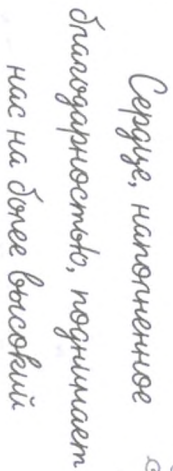 Сердце, наполненное
благодарностью, поднимает
нас на более высокий